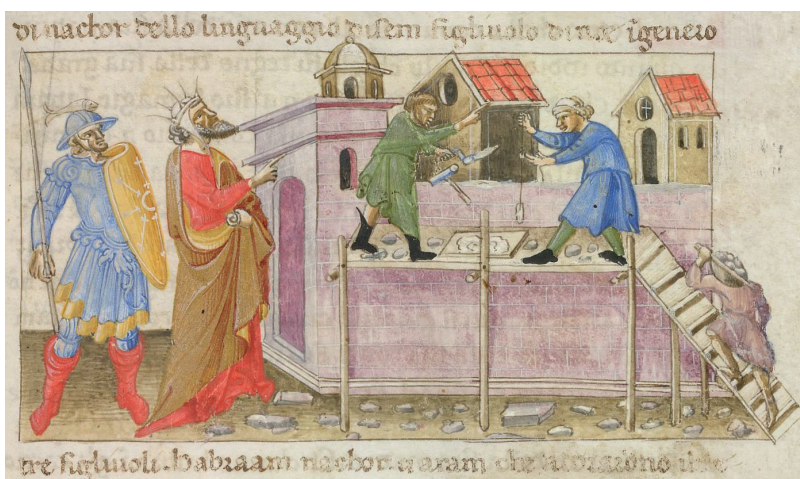 di nachor dello linguaggio disem figliuolo dinoe igenero
tre figliuoli. habraam nachor